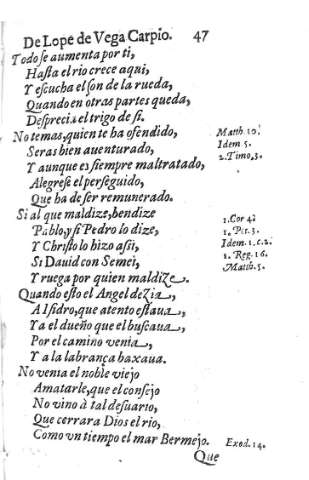 De Lope de Vega Carpio. 47
Todo se aumenta por ti,
Hasta el rio crece aqui,
Y escucha el son de la rueda,
Quando en otras partes queda,
Desprecia el trigo de si.
No temas, quien te ha ofendido, Matth. 10.
Seras bien auenturado, Idem 5.
Y aunque es siempre maltratado, 2. Timo. 3.
Alegrese el perseguido,
Que ha de ser remunerado.
Si al que maldize, bendize 1. Cor 4.
Pablo, y si Pedro lo dize, 1. Pet. 3.
Y Christo lo hizo assi, Idem. 1. c. 2.
Si Dauid con Semei, 1. Reg. 16.
Y ruega por quien maldize. Matth. 5.
Quando esto el Angel dezia,
A Isidro, que atento estaua,
Y a el dueño que el buscaua,
Por el camino venia,
Y a la labrança baxaua.
No venia el noble viejo
Amatarle, que el consejo
No vino à tal desuario,
Que cerrara Dios el rio,
Como vn tiempo el mar Bermejo. Exod. 14.
Que